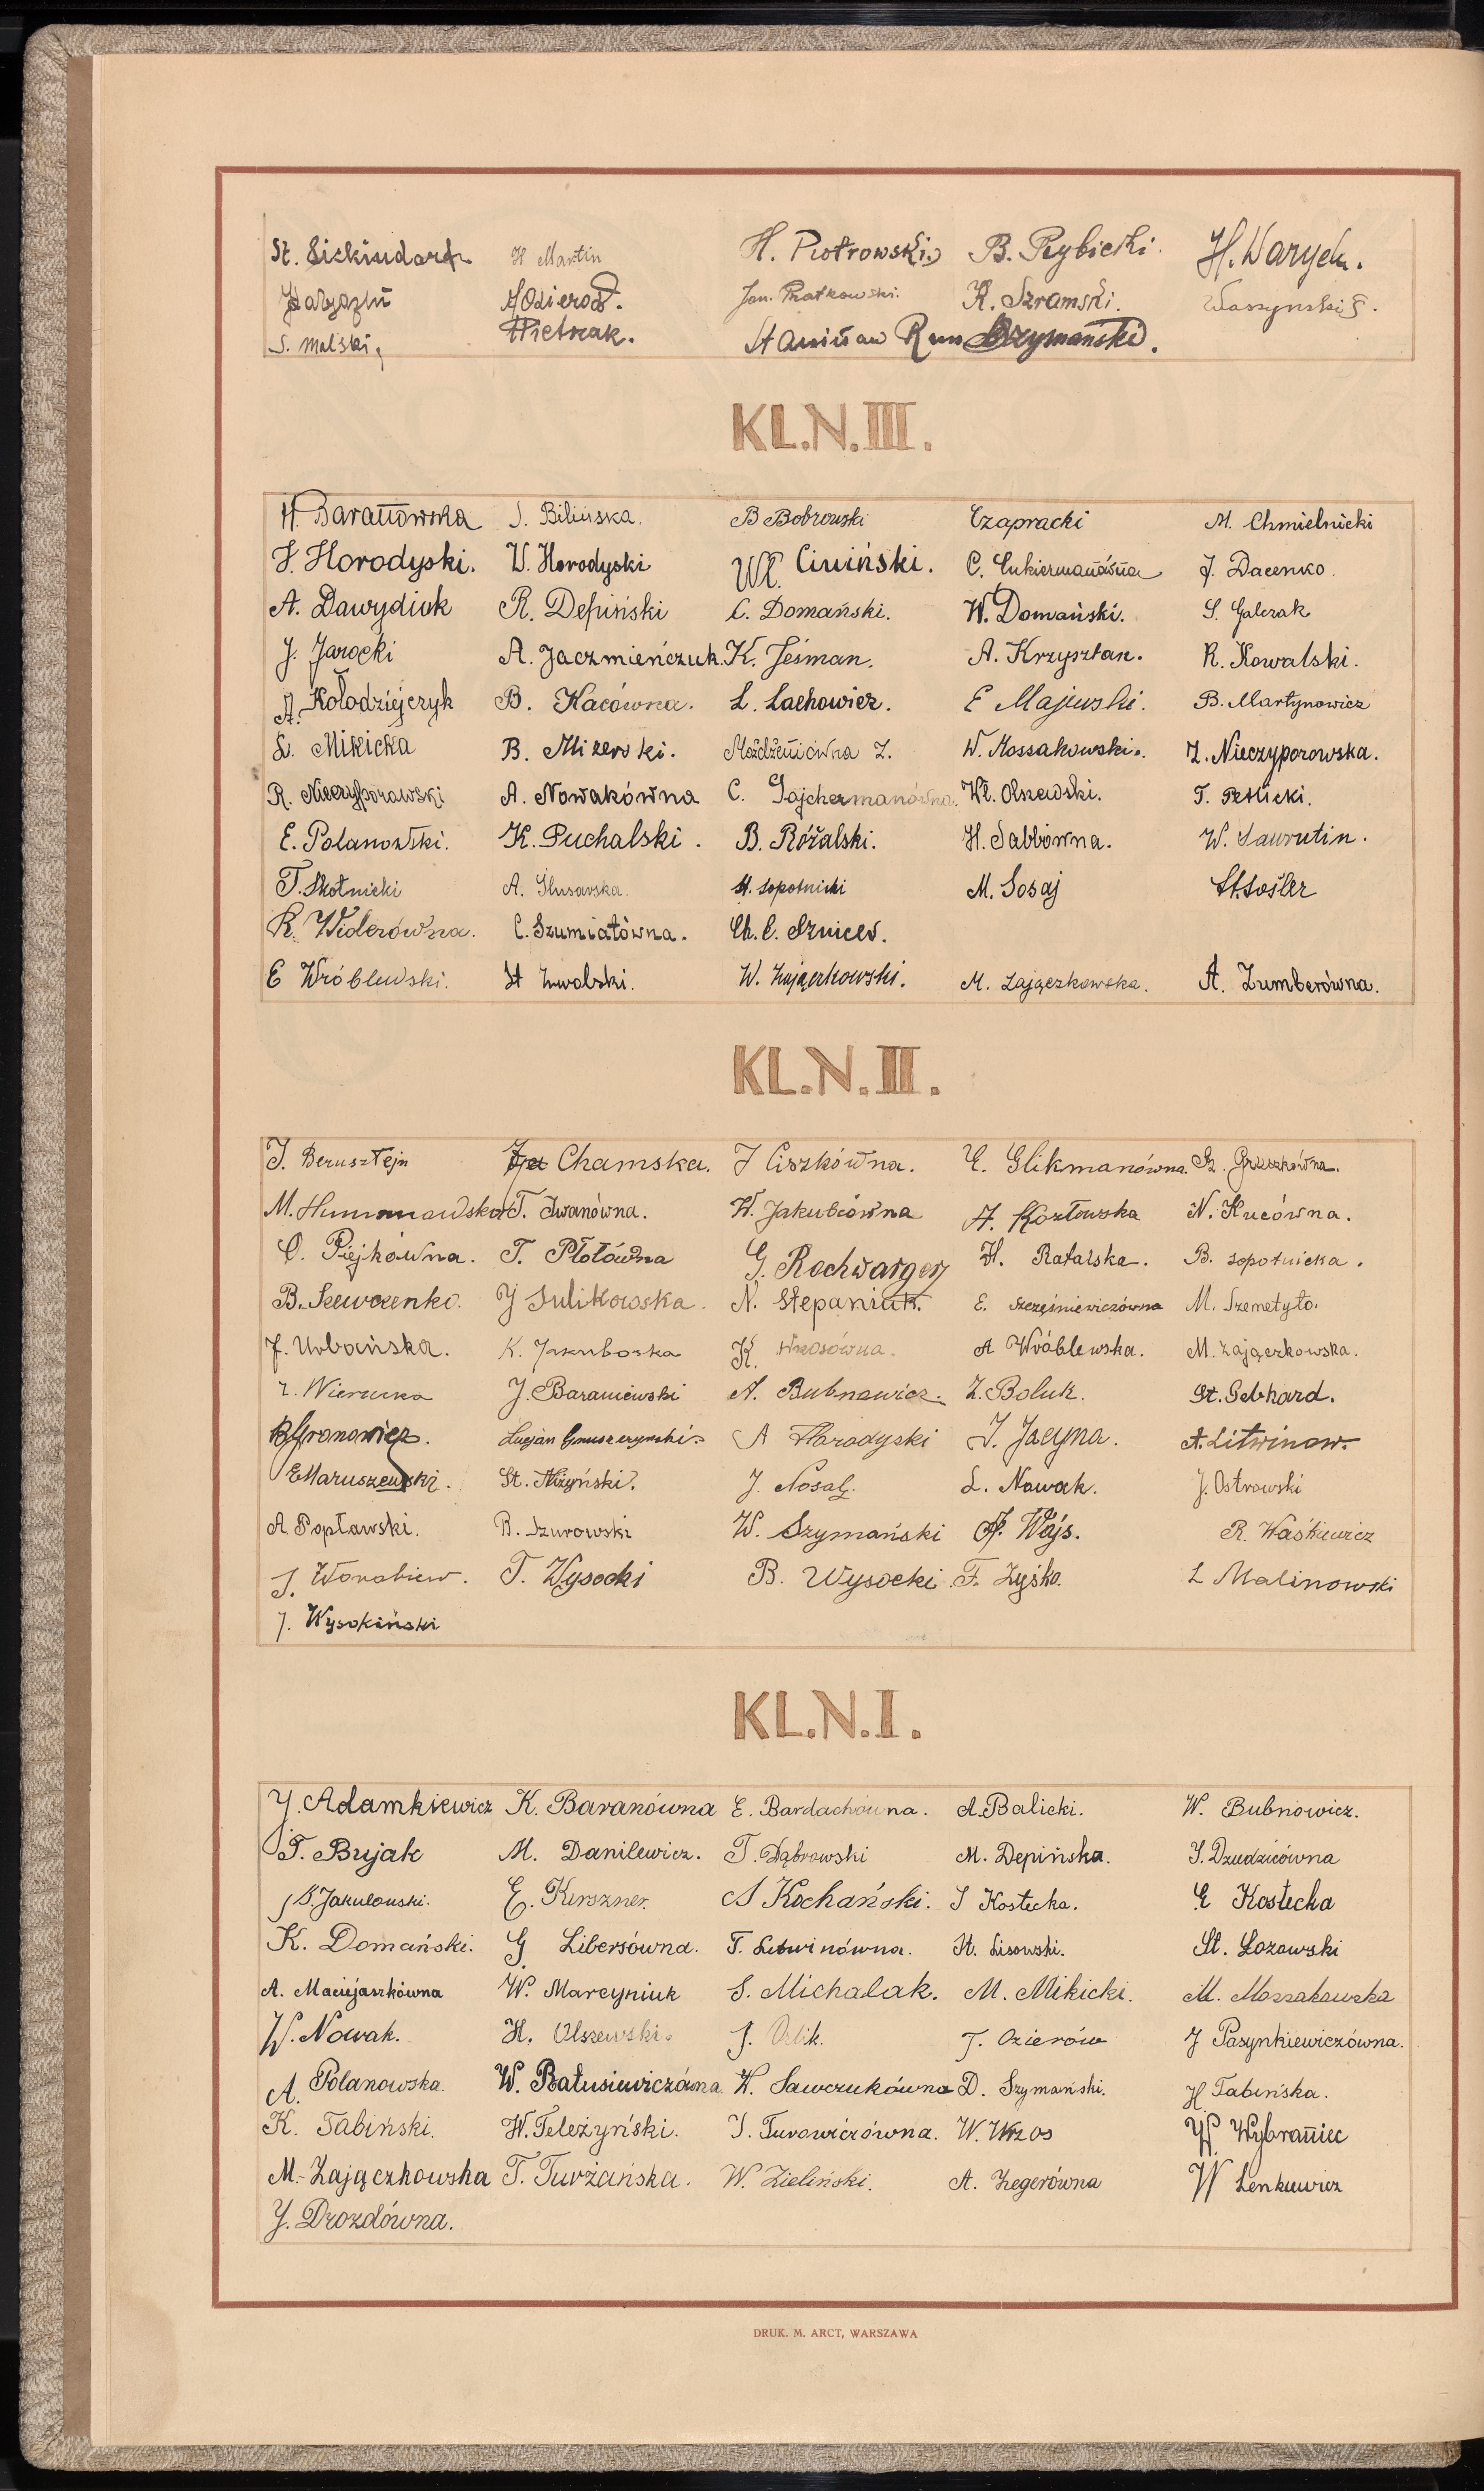 H. Martin H. Piotrowski B. Rybicki H. Warych.
Jan. Piatkowski. K. Szramski. Waszynski F.
S. Malski, Pietrzak. Stanisław Szymański.
KL.N.III.
H. Baranowska J. Bilińska. B Bobrowski Czapracki M. Chmielnicki
J. Horodyski. W. Horodyski Wł. Ciwiński. C. Cukiermanówna J. Dacenko.
A. Dawydiuk R. Depiński C. Domański. W. Domański. S. Galczak
J. Jarocki A. Jaczmieńczuk. K. Jeśman. A. Krzysztan. R. Kowalski.
A. Kołodziejczyk B. Kacówna. L. Lachowicz. E Majewski. B. Martynowicz
L. Mikicka B. Mizerski. Możdżeniówna Z. W. Mossakowski. Z. Nieczyporowska.
R. Nieczyporowski A. Nowakówna C. Pajchermanówna. Wł. Olszewski. T. Petlicki.
E. Polanowski. K. Puchalski. B. Różalski. H. Sabbówna. W. Sawrutin.
T. Skotnicki A. Slusarska. H. Sopotnicki M. Sosaj St. Sośler
R. Widerówna. C. Szumiatówna. Ch. C. Sznicer.
E Wróblewski. St Zwolski. W. Zajączkowski. M. Zajączkowska. A. Zumberówna.
KL.N.II.
J. Bernsztejn Chamska. J Ciszkówna. C. Glikmanówna. Gruszkówna.
M. T. Iwanówna. W. Jakubiówna H. Kozłowska N. Kucówna.
O. Piejkówna. T. Płotówna G. Rochwarger H. Ratalska. B. Sopotnicka.
B. Szewczenko. J Sulikowska. N. Stepaniuk. E. Szcześniewiczówna M. Szemetyło.
J. Urbańska. K. Jakuboska K. Wrzosówna. A Wróblewska. M. Zajączkowska.
Z. J. Baraniewski A. Bubnowicz. Z. Boluk. St. Gebhard.
B Gronowicz. Lucjan Gruszczynski. A Horodyski J. Jacyna. A. Litwinow.
E Maruszewski. St. Niżyński. J. Nosal. L. Nowak. J. Ostrowski
A Popławski. B. Szurowski W. Szymański A. Wojs. R. Waśkiewicz
J. Worobiew. T. Wysocki B. Wysocki F. Zyśko. L Malinowski
J. Wysokiński
KL.N.I.
J. Adamkiewicz K. Baranówna E. Bardachówna. A. Balicki. W. Bubnowicz.
T. Bujak M. Danilewicz. T. Dąbrowski M. Depińska. J. Dziedzicówna
B. Jakubowski. E. Kirszner. S Kochański. J Kostecka. E Kostecka
K. Domański. G Libersówna. T. Litwinówna. H. Lisowski. St. Łozowski
A. Maciejaszkówna W. Marcyniuk S. Michalak. M. Mikicki. M. Mossakowska
W. Nowak. H. Olszewski. J. Orlik. J. Ozierów J Pasynkiewiczówna.
A. Polanowska. W. Ratusiewiczówna W. Sawczukówna D. Szymański. H. Tabińska.
K. Tabiński. W. Teleżyński. J. Turowiczówna. W. Wrzos W. Wybraniec
M. Zajączkowska T. Turżańska. W. Zieliński. A. Zegerówna W Lenkiewicz
J. Drozdówna.
DRUK. M. ARCT, WARSZAWA